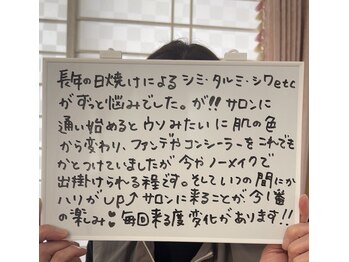 長年の日焼けによるシミ・タルミ・シワetc
がずっと悩みでした。が!! サロンに
通い始めるとウソみたいに肌の色
から変わり、ファンデやコンシーラーをこれでも
かとつけていましたが今やノーメイクで
出掛けられる程です。そしていつの間にか
ハリがUP↑サロンに来ることが今1番
の楽しみ♥毎回来る度変化があります!!